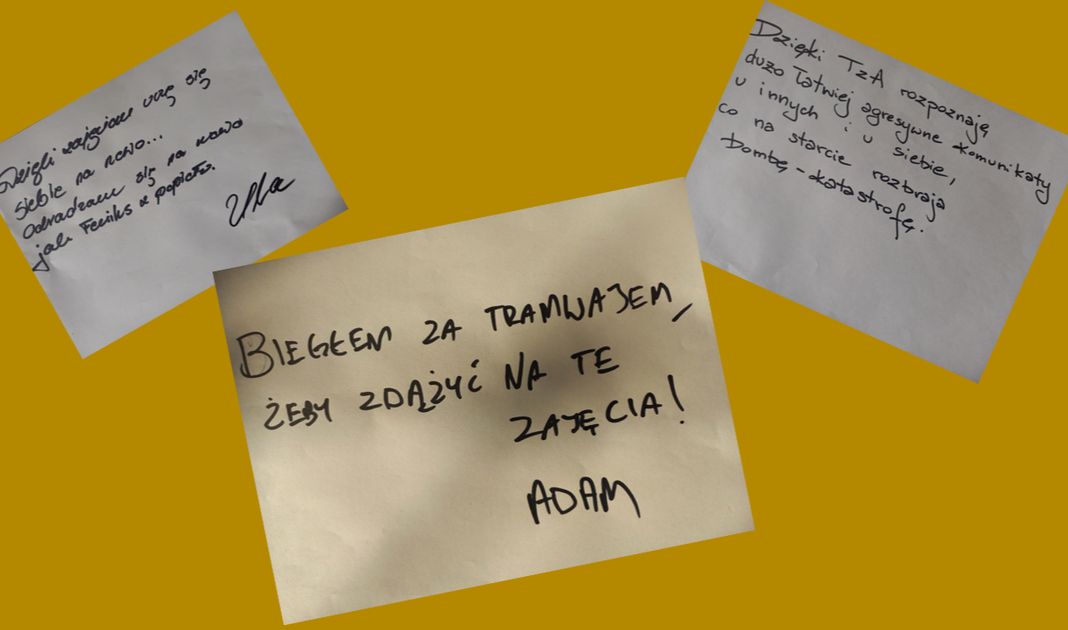 Dzięki zajęciom uczę się
siebie na nowo...
Odradzam się na nowo
jak Feniks z popiołu.
Ula
BIEGŁEM ZA TRAMWAJEM,
ŻEBY ZDĄŻYĆ NA TE
ZAJĘCIA!
ADAM
Dzięki TZA rozpoznaję
dużo łatwiej agresywne komunikaty
u innych i u siebie,
co na starcie rozbraja
bombę-katastrofę.